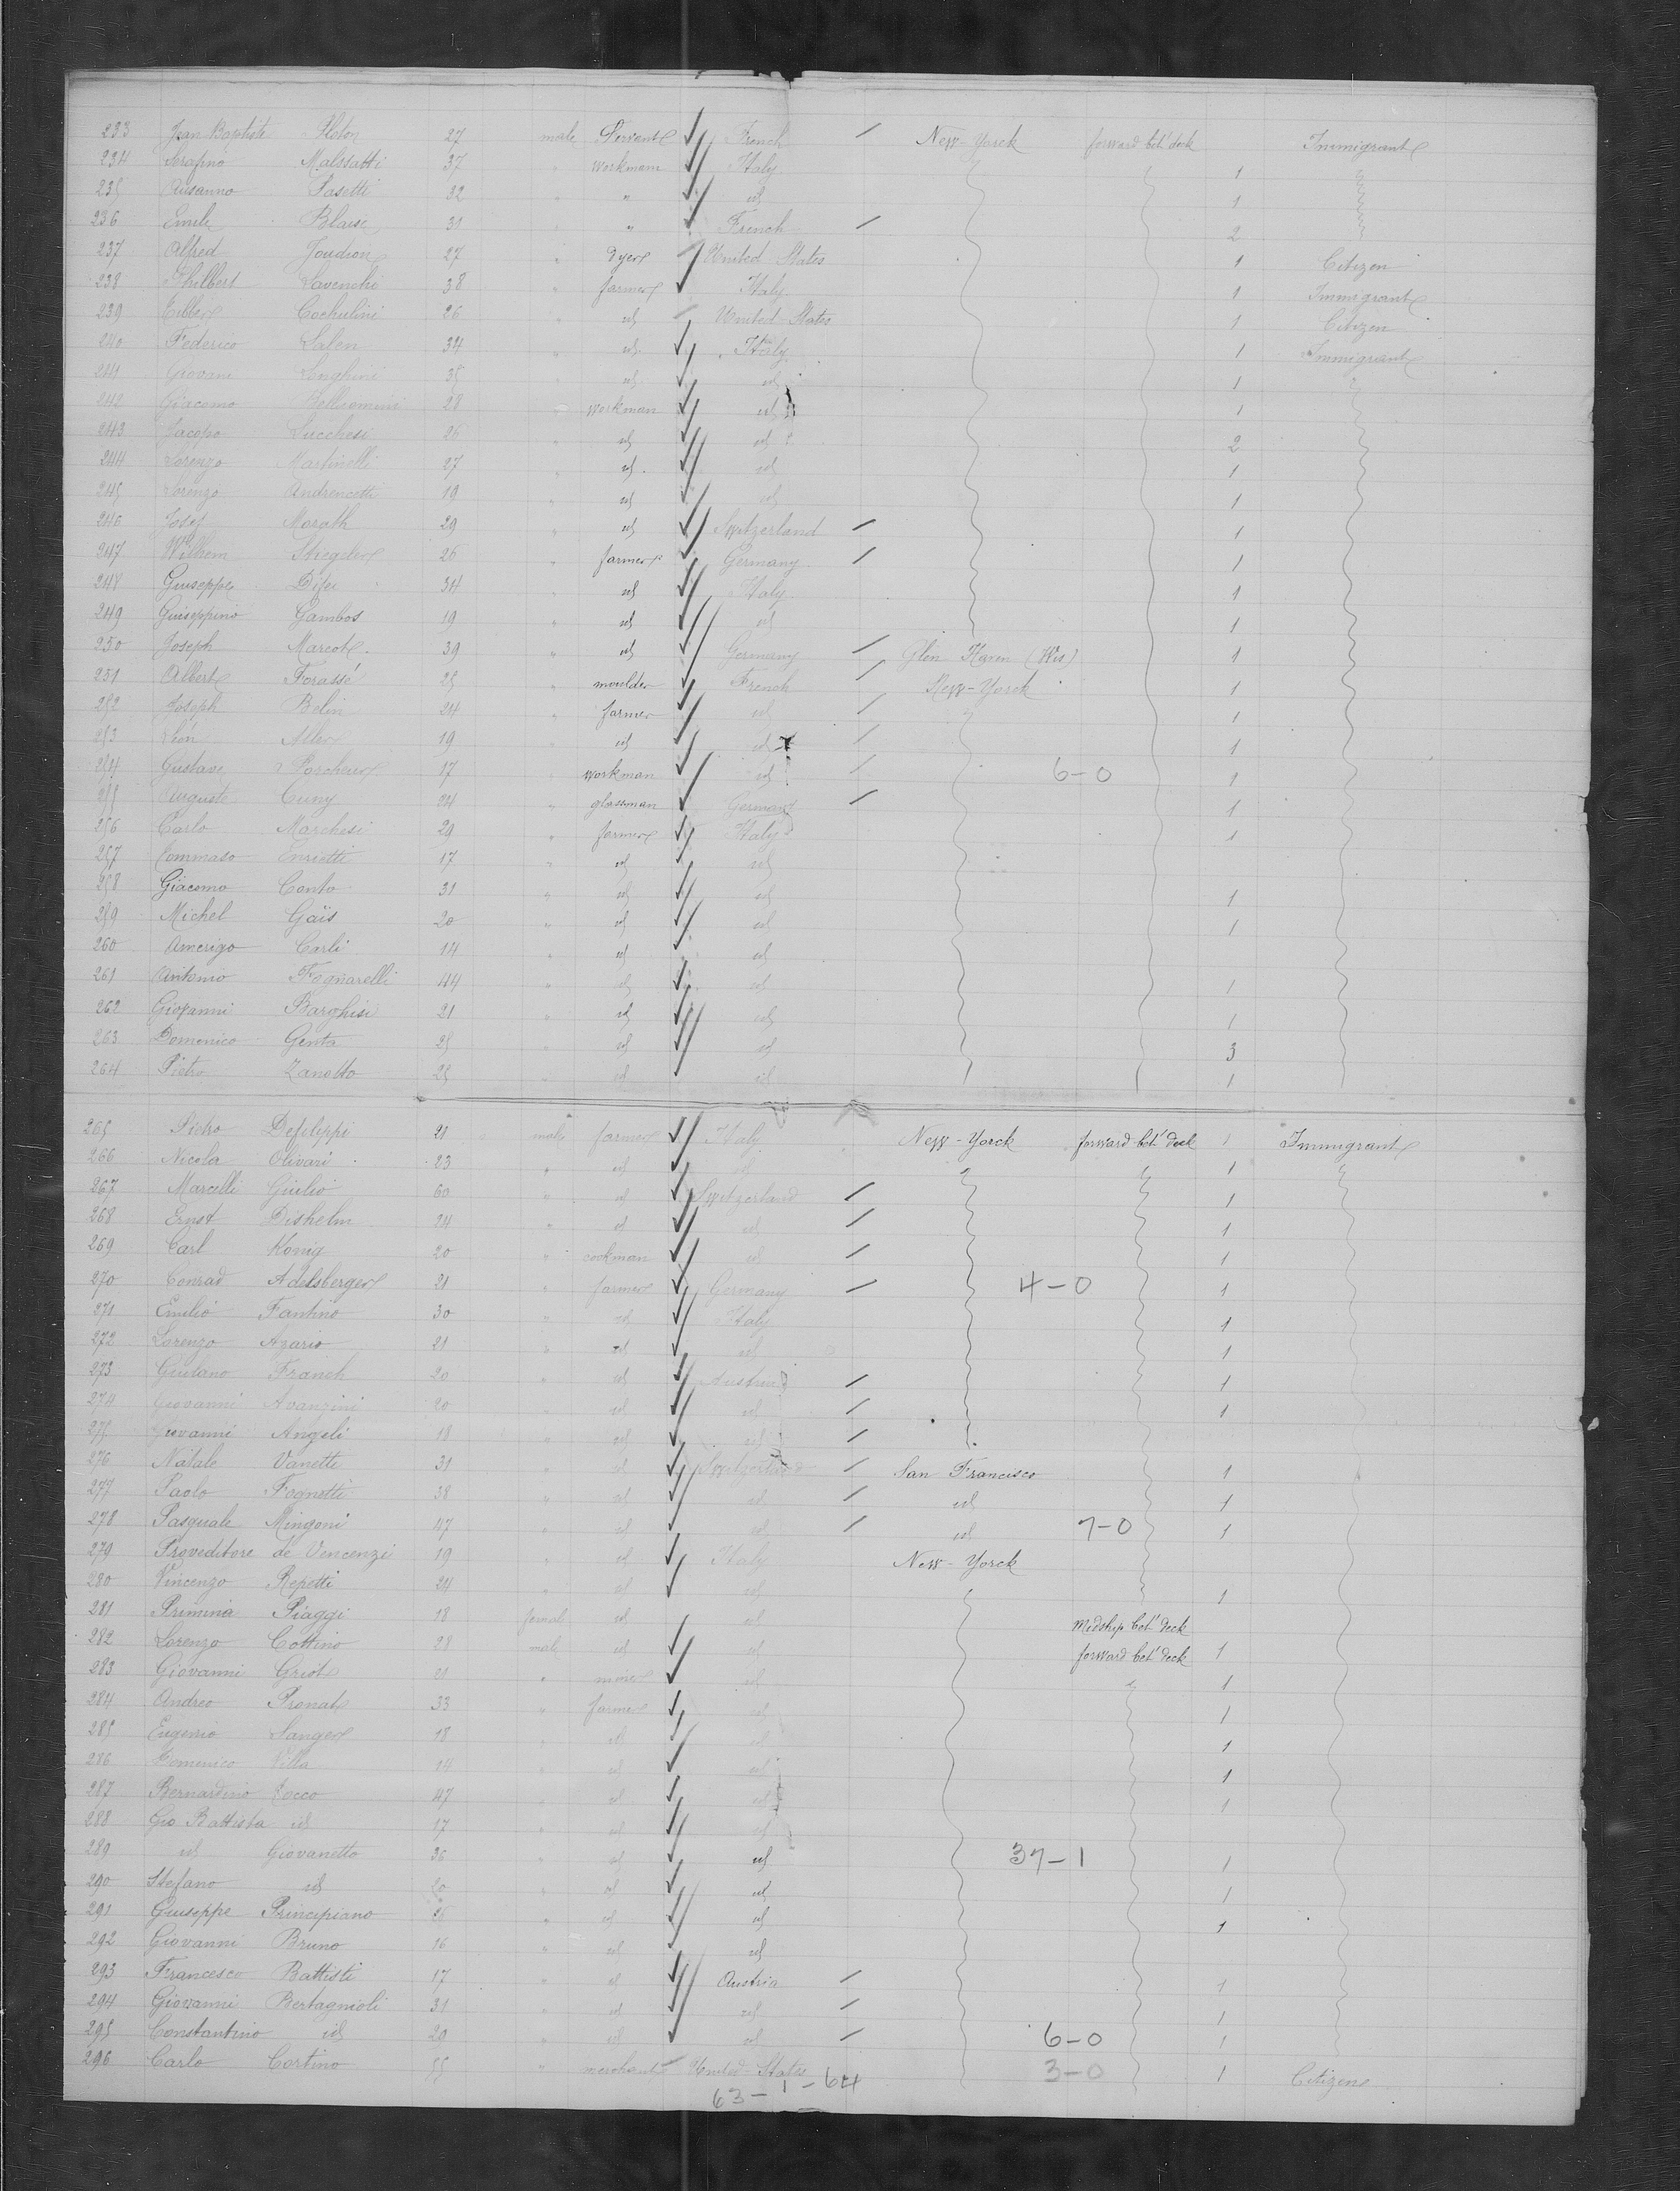 233 Jean Baptiste Ploton 27 male Servant French New-Yorck forward bet' deck Immigrant
234 Serafino Malssatti 37 " workmann Italy 1
235 Ausanno Pasetti 32 " " id 1
236 Emile Blaise 31 " " French 2
237 Alfred Joudion 27 " dyer United States 1 Citizen
238 Philbert Lavenchi 38 " farmer Italy 1 Immigrant
239 Cochulini 26 " id United-States 1 Citizen
240 Federico Salen 34 " id Italy 1 Immigrant
241 Giovani Longhini 35 " id id 1
242 Giacomo Belluomini 28 " workman id 1
243 Jacopo Lucchesi 26 " id id 2
244 Lorenzo Martinelli 27 " id id 1
245 Lorenzo Andreucetti 19 " id id 1
246 Josef Morath 29 " id Switzerland 1
247 Wilhem Stiegeler 26 " farmer Germany 1
248 Giuseppe Difei 34 " id Italy 1
249 Guiseppino Gambos 19 " id id 1
250 Joseph Marcot 39 " id Germany Glen Haven (Wis) 1
251 Albert Forassé 25 " moulder French New-Yorck 1
252 Joseph Belin 24 " farmer id 1
253 Léon Aller 19 " id id 1
254 Gustave Porcheur 17 " workman id 6-0 1
255 Auguste Cuny 24 " glassman Germany 1
256 Carlo Marchesi 29 " farmer Italy 1
257 Tommaso Enrietti 17 " id id
258 Giacomo Conto 31 " id id 1
259 Michel Gaïs 20 " id id 1
260 Amerigo Carli 14 " id id
261 Antonio Fognarelli 44 " id id 1
262 Giovanni Barghisi 21 " id id 1
263 Domenico Genta 25 " id id 3
264 Pietro Zanotto 25 " id id 1
265 Pietro Defilippi 21 male farmer Italy New-Yorck forward bet' deck 1 Immigrant
266 Nicola Olivari 23 " id id 1
267 Marcelli Giulio 60 " id Switzerland 1
268 Ernst Dishelm 24 " id id 1
269 Carl Konig 20 " cookman id 1
270 Conrad Adelsberger 21 " farmer Germany 4-0 1
271 Emilio Fantino 30 " id Italy 1
272 Lorenzo Azario 21 " id id 1
273 Giuliano Franch 20 " id Austria 1
274 Giovanni Avanzini 20 " id id 1
275 Giovanni Angeli 18 " id id
276 Natale Vanetti 31 " id Switzerland San Francisco 1
277 Paolo Fognetti 38 " id id id 1
278 Pasquale Mingoni 47 " id id id 7-0 1
279 Proveditore de Vencenzi 19 " id Italy New-Yorck
280 Vincenzo Repetti 24 " id id 1
281 Primina Piaggi 18 female id id Midship bet' deck
282 Lorenzo Cottino 28 male id id forward bet' deck 1
283 Giovanni Griot 21 " id 1
284 Andreo Pronat 33 " farmer id 1
285 Eugenio Sanger 18 " id id 1
286 Domenico Villa 14 " id id 1
287 Bernardino Rocco 47 " id id 1
288 Gio Battista id 17 " id id
289 id Giovanetto 36 " id id 37-1 1
290 Stefano id 20 " id id 1
291 Giuseppe Principiano 26 " id id 1
292 Giovanni Bruno 16 " id id
293 Francesco Battisti 17 " id Austria 1
294 Giovanni Bertagnioli 31 " id id 1
295 Constantino id 20 " id id 6-0 1
296 Carlo Cortino 55 " merchant United-States 3-0 1 Citizen
63-1-64